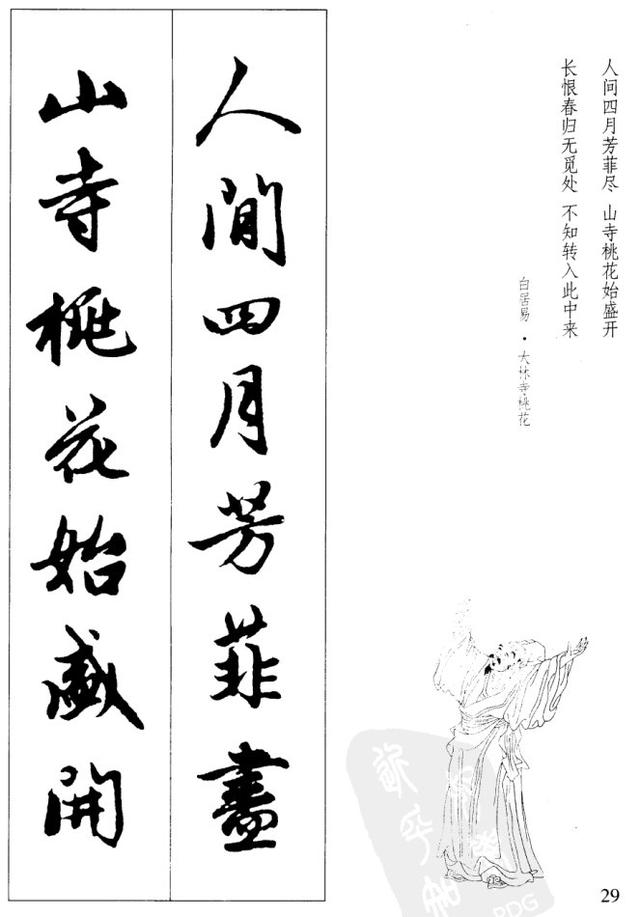 人间四月芳菲尽 山寺桃花始盛开
长恨春归无觅处 不知转入此中来
白居易·大林寺桃花
人間四月芳菲盡
山寺桃花始盛開
29
PDG